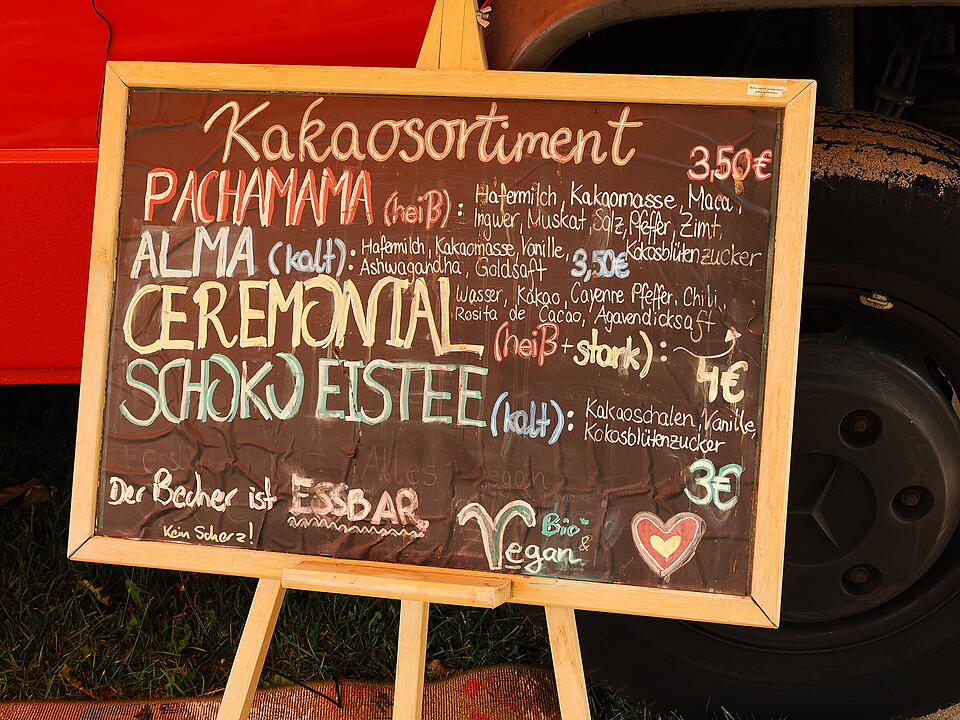 Kakaosortiment
3,50€
PACHAMAMA (heiß): Hafermilch, Kakaomasse, Maca,
Ingwer, Muskat, Salz, Pfeffer, Zimt,
Kokosblütenzucker
ALMA (kalt): Hafermilch, Kakaomasse, Vanille,
Ashwagandha, Goldsaft 3,50€
CEREMONIAL Wasser, Kakao, Cayenne Pfeffer, Chili,
Rosita de Cacao, Agavendicksaft
(heiß + stark):
4€
SCHOKO EISTEE (kalt): Kakaoschalen, Vanille,
Kokosblütenzucker
3€
Der Becher ist ESSBAR
Kein Scherz!
Bio &
Vegan